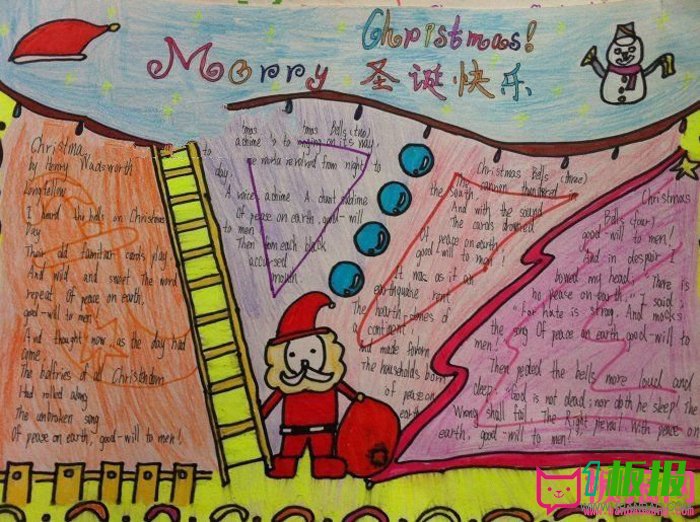 Christmas!
Merry 圣诞快乐
Christmas
by Henry Wadsworth
Longfellow
I heard the bells on Christmas
Day
Their old familiar carols play,
And wild and sweet The word
repeat Of peace on earth,
good-will to men!
And thought how as the day had
come,
The belfries of all Christendom
Had rolled along
The unbroken song
Of peace on earth, good-will to men!
Bells (two)
to ringing on its way,
to
The world revolved from night to
day,
A voice, a chime A chant sublime
Of peace on earth, good-will
to men!
Then from each black
accursed
mouth
Christmas Bells (three)
The cannon thundered
the South
And with the sound
The carols drowned
Of peace on earth
good-will to men!
It was as if an
earthquake rent
The hearth-stones of
a continent
And made forlorn
The households born
Of peace on
earth
Christmas
Bells (four)
good-will to men!
And in despair I
bowed my head There is
no peace on earth," I said;
"For hate is strong, And mocks
the song Of peace on earth, good-will to
men!
Then pealed the bells more loud and
deep: "God is not dead; nor doth he sleep! The
Wrong shall fail, The Right prevail, With peace on
earth, good-will to men!
板报